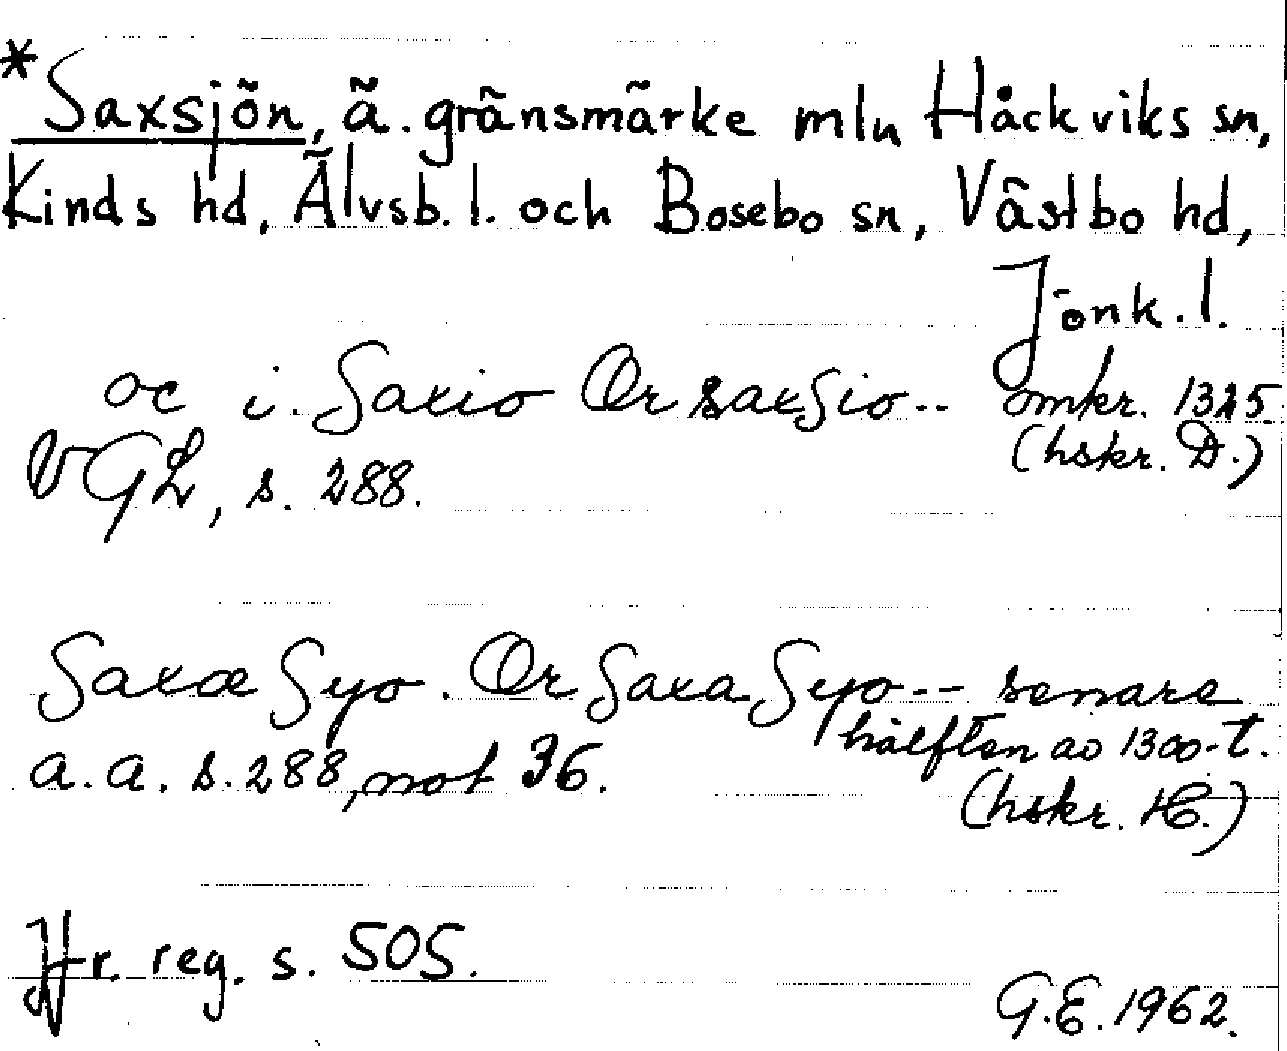 *Saxsjön, ä. gränsmärke mln Håckviks sn,
Kinds hd, Älvsb. l. och Bosebo sn, Västbo hd,
Jönk. l.
oc i. Saxio Or saxsio-- omkr. 1325
VGL, s. 288. (hskr. D.)
Saxæ Syo. Or Saxa Syo-- senare
a. a. s. 288, not 36. hälften av 1300-t.
(hskr. H.)
Jfr. reg. s. 505.
G.E. 1962.